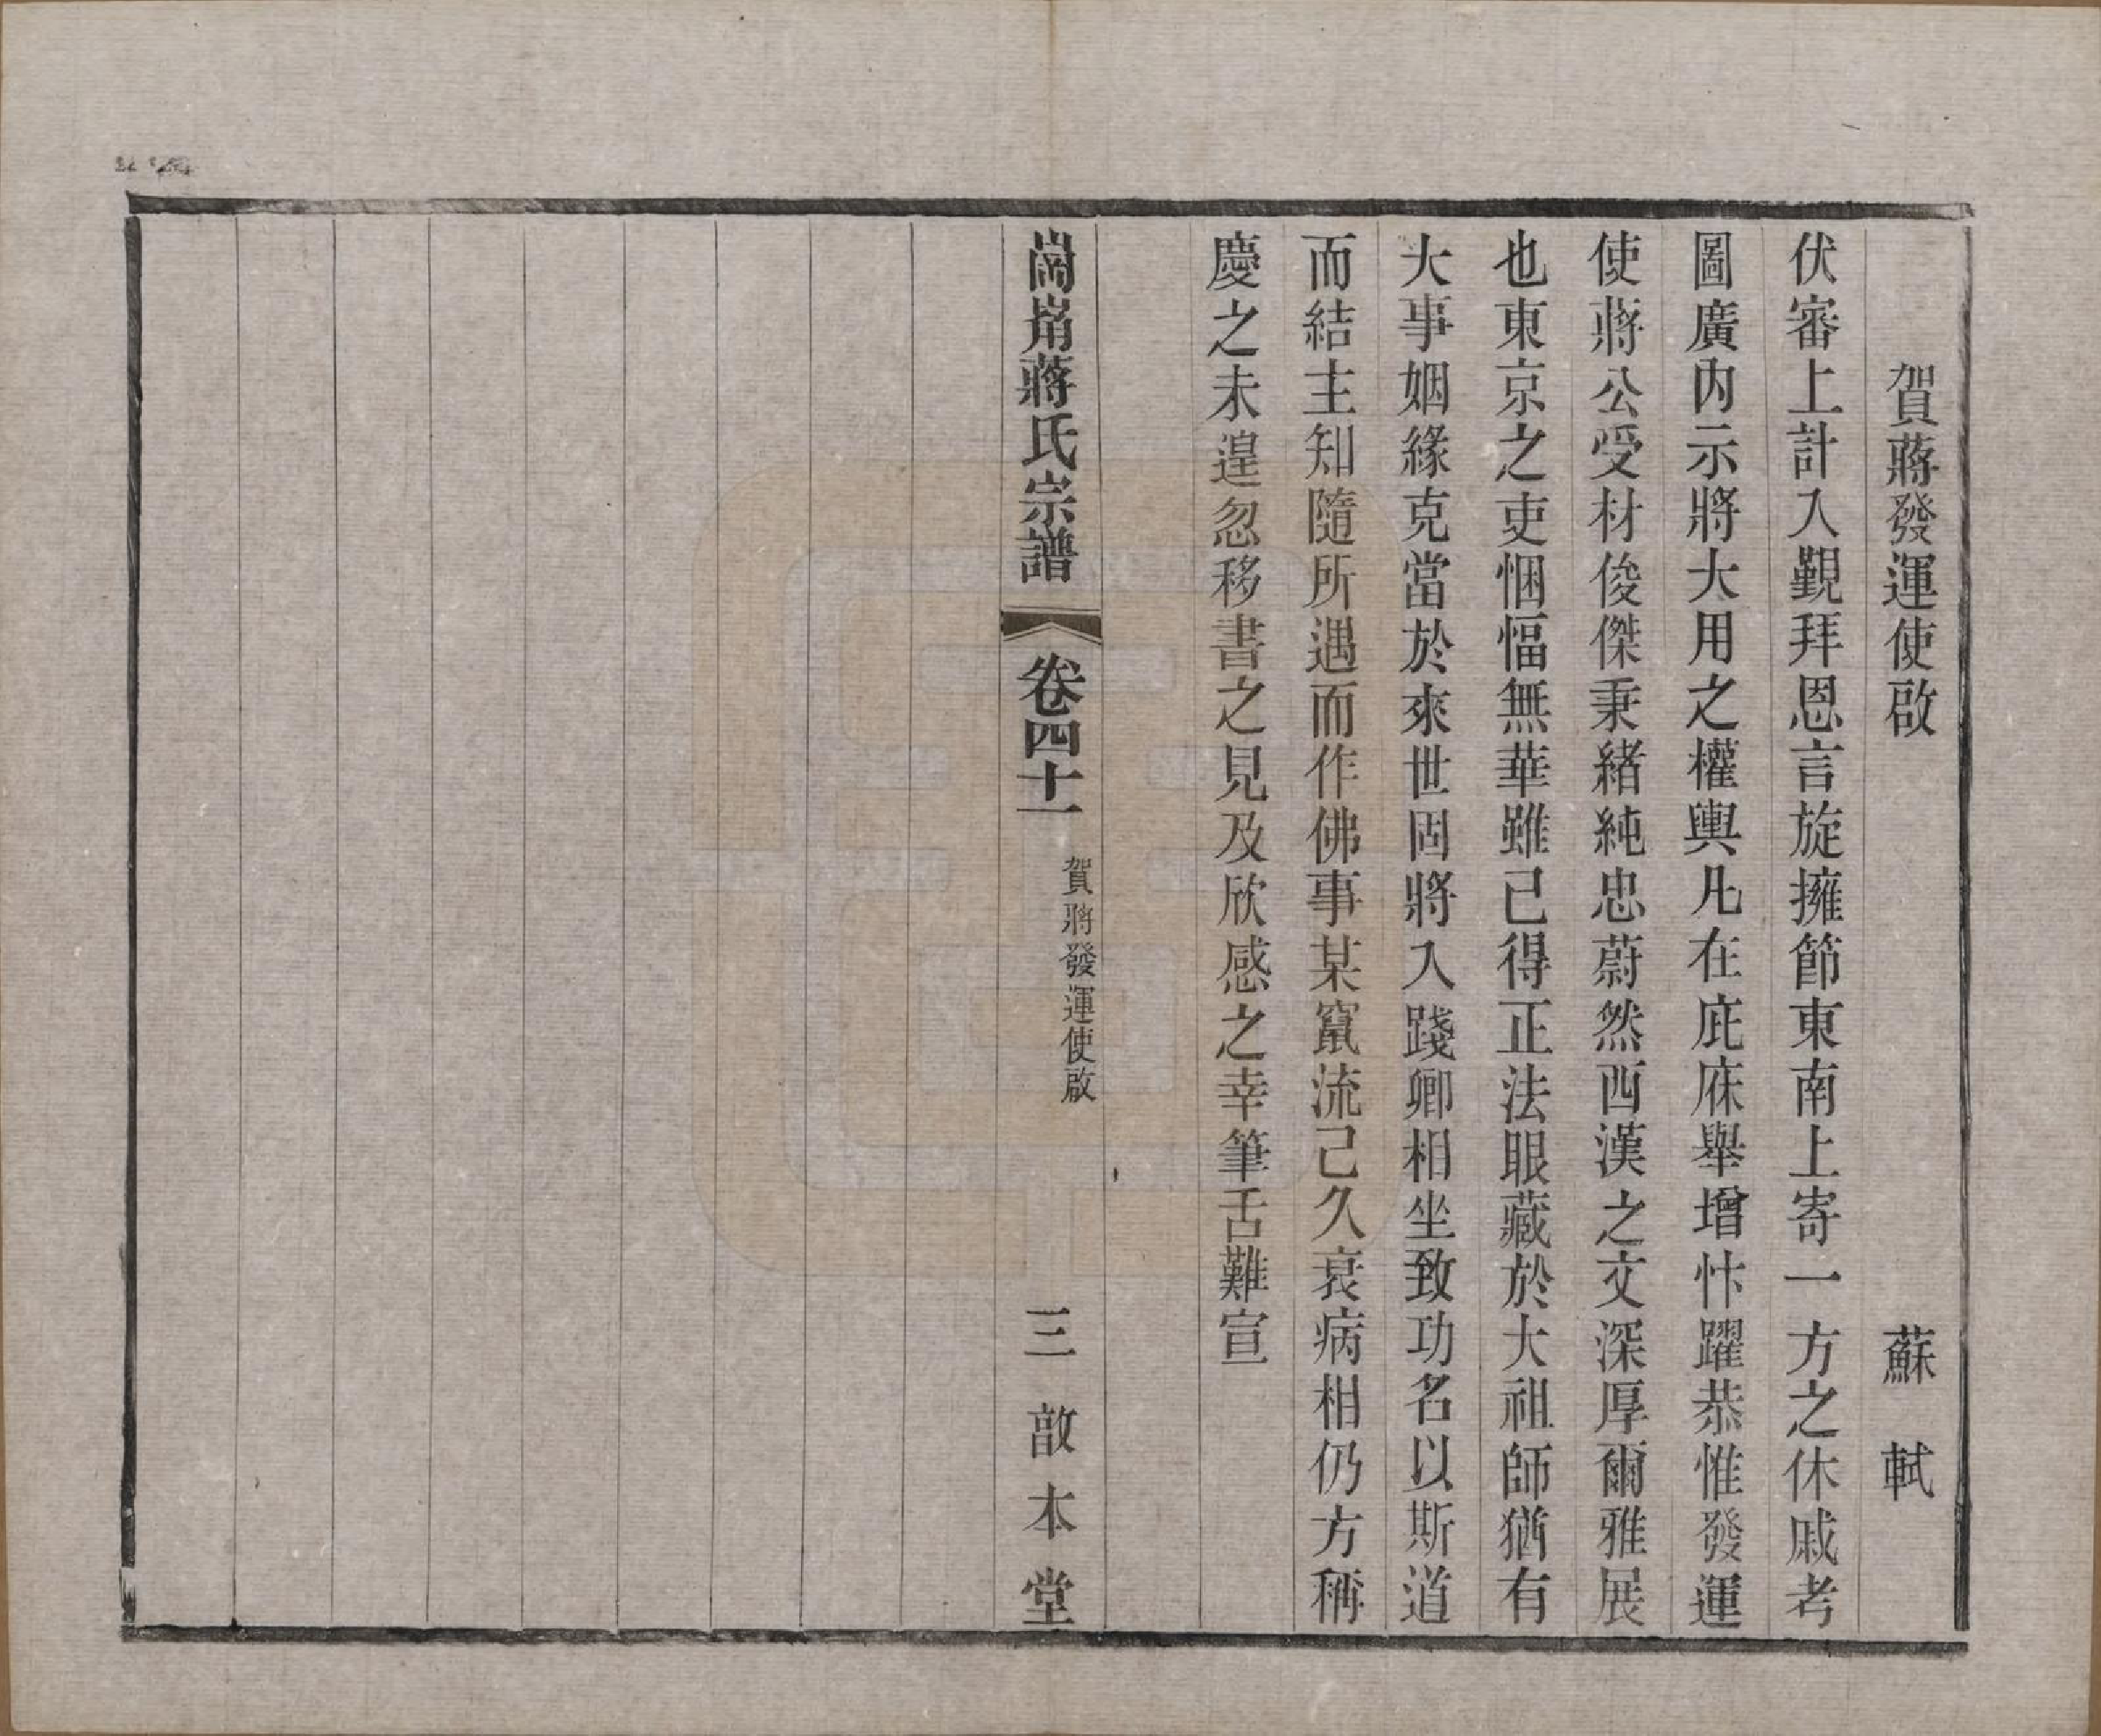 賀蔣發運使啟
蘇軾
伏審上計入覲拜恩言旋擁節東南上寄一方之休戚考
圖廣內示將大用之權輿凡在庇庥舉增忭躍恭惟發運
使蔣公受材俊傑秉緒純忠蔚然西漢之文深厚爾雅展
也東京之吏悃愊無華雖已得正法眼藏於大祖師猶有
大事姻緣克當於來世固將入踐卿相坐致功名以斯道
而結主知隨所遇而作佛事某竄流己久衰病相仍方稱
慶之未遑忽移書之見及欣感之幸筆舌難宣
蔣氏宗譜
卷四十一
賀將發運使啟
三
敔本堂